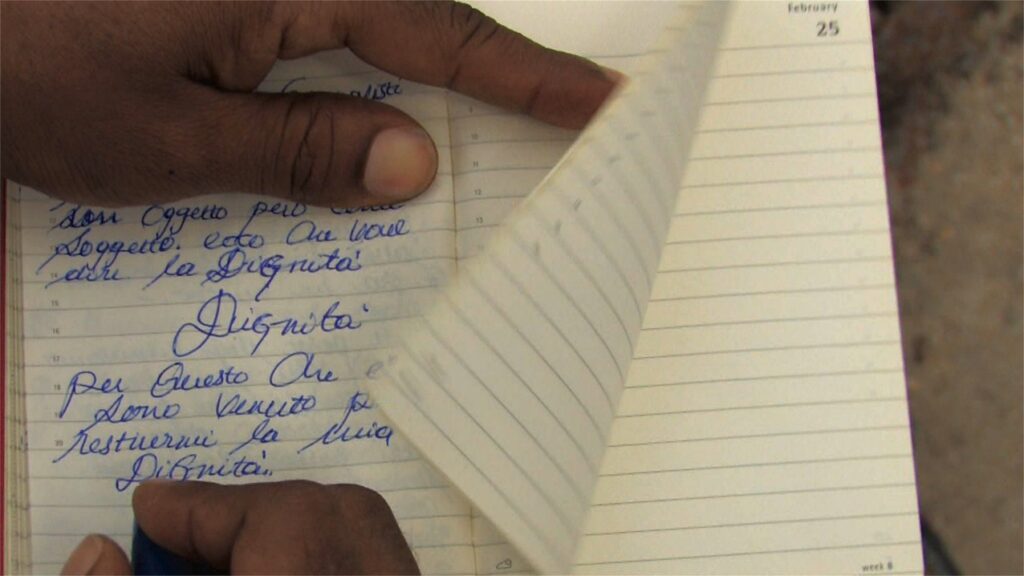 February
25
son oggetto però come
soggetto. ecco che vuol
dire la Dignità
Dignità
per Questo che
sono venuto
restituirmi la mia
Dignità..
week 8